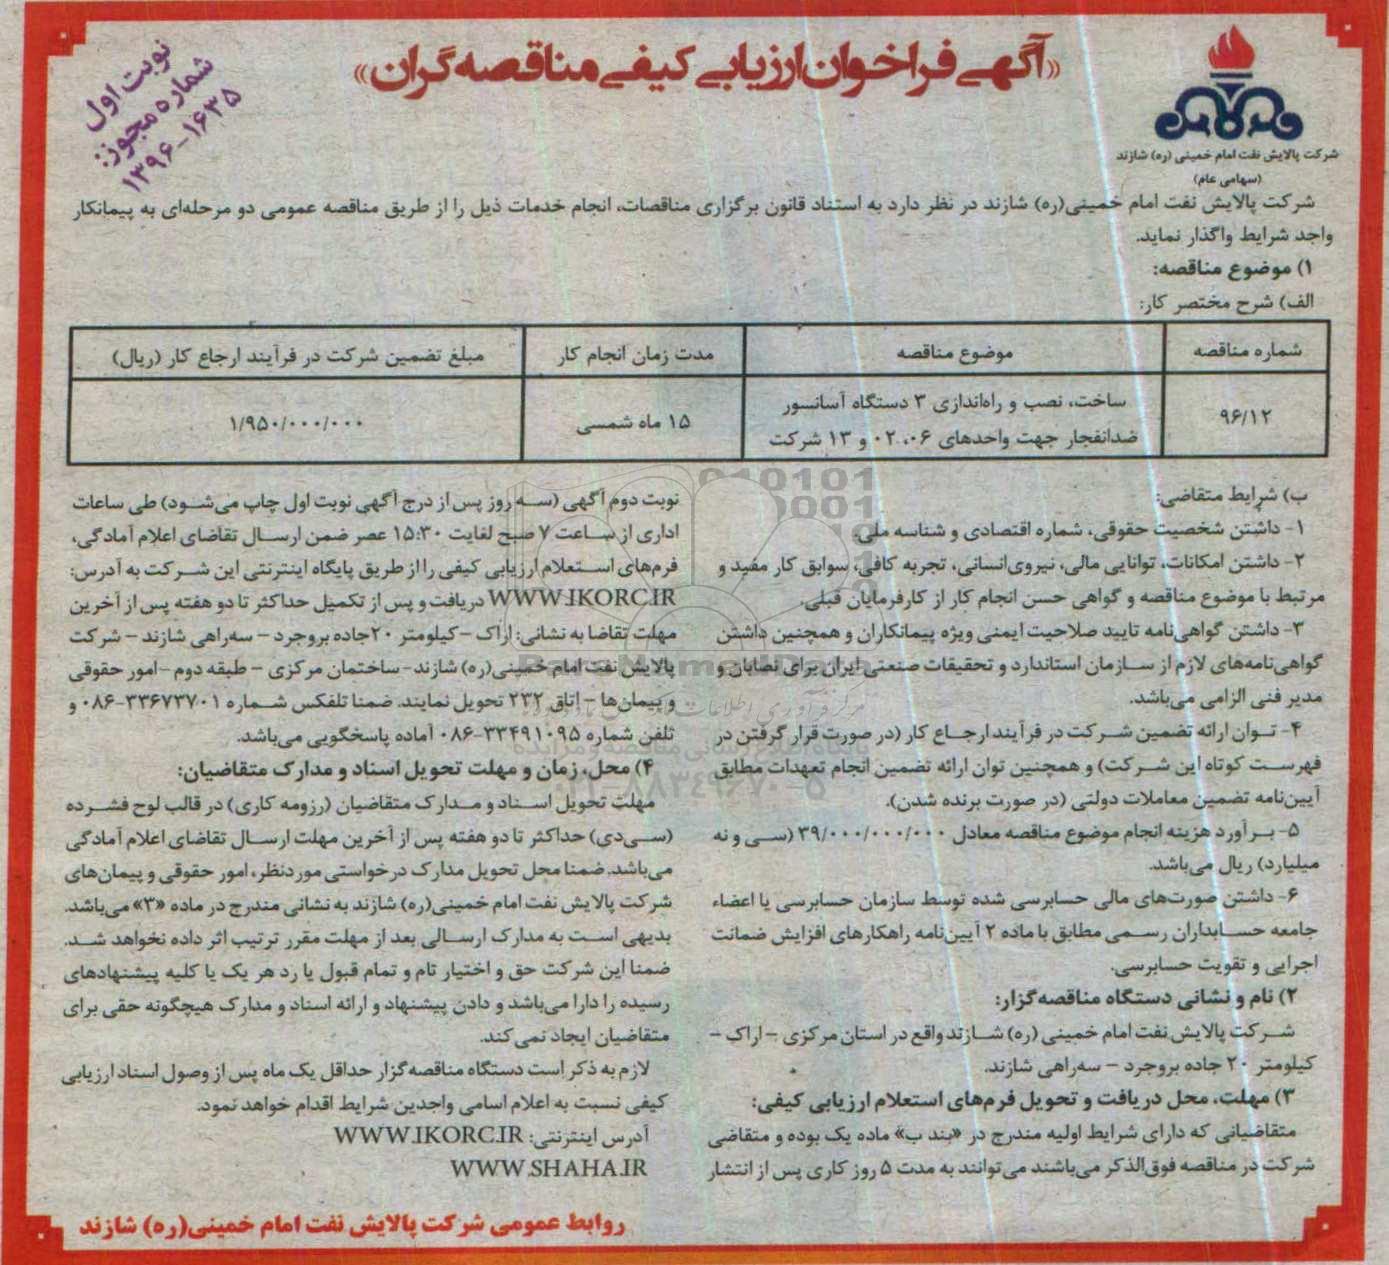 «آگهی فراخوان ارزیابی کیفی مناقصه‌گران»
نوبت اول
شماره مجوز:
۱۳۹۶-۱۶۳۵
شرکت پالایش نفت امام خمینی (ره) شازند
(سهامی عام)
شرکت پالایش نفت امام خمینی(ره) شازند در نظر دارد به استناد قانون برگزاری مناقصات، انجام خدمات ذیل را از طریق مناقصه عمومی دو مرحله‌ای به پیمانکار
واجد شرایط واگذار نماید.
۱) موضوع مناقصه:
الف) شرح مختصر کار:
شماره مناقصه
موضوع مناقصه
مدت زمان انجام کار
مبلغ تضمین شرکت در فرآیند ارجاع کار (ریال)
۹۶/۱۲
ساخت، نصب و راه‌اندازی ۳ دستگاه آسانسور
ضدانفجار جهت واحدهای ۰۶، ۰۲ و ۱۳ شرکت
۱۵ ماه شمسی
۱/۹۵۰/۰۰۰/۰۰۰
ب) شرایط متقاضی:
۱- داشتن شخصیت حقوقی، شماره اقتصادی و شناسه ملی.
۲- داشتن امکانات، توانایی مالی، نیروی‌انسانی، تجربه کافی، سوابق کار مفید و
مرتبط با موضوع مناقصه و گواهی حسن انجام کار از کارفرمایان قبلی.
۳- داشتن گواهی‌نامه تایید صلاحیت ایمنی ویژه پیمانکاران و همچنین داشتن
گواهی‌نامه‌های لازم از سازمان استاندارد و تحقیقات صنعتی ایران برای نصابان و
مدیر فنی الزامی می‌باشد.
۴- توان ارائه تضمین شرکت در فرآیند ارجاع کار (در صورت قرار گرفتن در
فهرست کوتاه این شرکت) و همچنین توان ارائه تضمین انجام تعهدات مطابق
آیین‌نامه تضمین معاملات دولتی (در صورت برنده شدن).
۵- برآورد هزینه انجام موضوع مناقصه معادل ۳۹/۰۰۰/۰۰۰/۰۰۰ (سی و نه
میلیارد) ریال می‌باشد.
۶- داشتن صورت‌های مالی حسابرسی شده توسط سازمان حسابرسی یا اعضاء
جامعه حسابداران رسمی مطابق با ماده ۲ آیین‌نامه راهکارهای افزایش ضمانت
اجرایی و تقویت حسابرسی.
۲) نام و نشانی دستگاه مناقصه‌گزار:
شرکت پالایش نفت امام خمینی (ره) شازند واقع در استان مرکزی - اراک -
کیلومتر ۲۰ جاده بروجرد - سه‌راهی شازند.
۳) مهلت، محل دریافت و تحویل فرم‌های استعلام ارزیابی کیفی:
متقاضیانی که دارای شرایط اولیه مندرج در «بند ب» ماده یک بوده و متقاضی
شرکت در مناقصه فوق‌الذکر می‌باشند می‌توانند به مدت ۵ روز کاری پس از انتشار
نوبت دوم آگهی (سه روز پس از درج آگهی نوبت اول چاپ می‌شود) طی ساعات
اداری از ساعت ۷ صبح لغایت ۱۵:۳۰ عصر ضمن ارسال تقاضای اعلام آمادگی،
فرم‌های استعلام ارزیابی کیفی را از طریق پایگاه اینترنتی این شرکت به آدرس:
WWW.IKORC.IR دریافت و پس از تکمیل حداکثر تا دو هفته پس از آخرین
مهلت تقاضا به نشانی: اراک - کیلومتر ۲۰ جاده بروجرد - سه‌راهی شازند - شرکت
پالایش نفت امام خمینی(ره) شازند - ساختمان مرکزی - طبقه دوم - امور حقوقی
و پیمان‌ها - اتاق ۲۳۲ تحویل نمایند. ضمنا تلفکس شماره ۳۳۶۷۳۷۰۱-۰۸۶ و
تلفن شماره ۳۳۴۹۱۰۹۵-۰۸۶ آماده پاسخگویی می‌باشد.
۴) محل، زمان و مهلت تحویل اسناد و مدارک متقاضیان:
مهلت تحویل اسناد و مدارک متقاضیان (رزومه کاری) در قالب لوح فشرده
(سی‌دی) حداکثر تا دو هفته پس از آخرین مهلت ارسال تقاضای اعلام آمادگی
می‌باشد. ضمنا محل تحویل مدارک درخواستی موردنظر، امور حقوقی و پیمان‌های
شرکت پالایش نفت امام خمینی(ره) شازند به نشانی مندرج در ماده «۳» می‌باشد.
بدیهی است به مدارک ارسالی بعد از مهلت مقرر ترتیب اثر داده نخواهد شد.
ضمنا این شرکت حق و اختیار تام و تمام قبول یا رد هر یک یا کلیه پیشنهادهای
رسیده را دارا می‌باشد و دادن پیشنهاد و ارائه اسناد و مدارک هیچگونه حقی برای
متقاضیان ایجاد نمی‌کند.
لازم به ذکر است دستگاه مناقصه‌گزار حداقل یک ماه پس از وصول اسناد ارزیابی
کیفی نسبت به اعلام اسامی واجدین شرایط اقدام خواهد نمود.
آدرس اینترنتی: WWW.IKORC.IR
WWW.SHAHA.IR
روابط عمومی شرکت پالایش نفت امام خمینی(ره) شازند